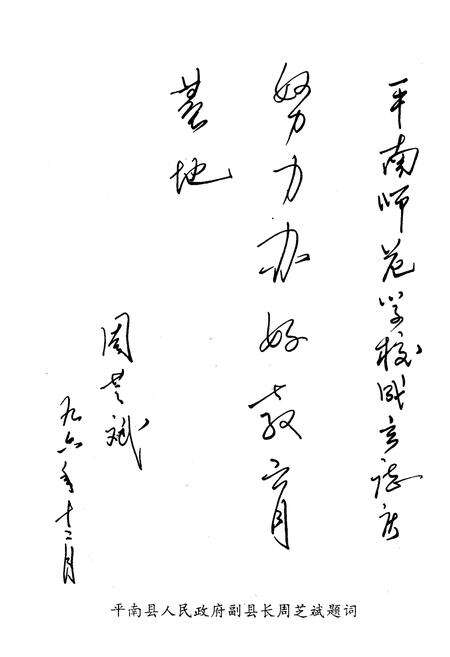 平南师范学校成立志庆
努力办好教育
基地
周芝斌
九六年十二月
平南县人民政府副县长周芝斌题词